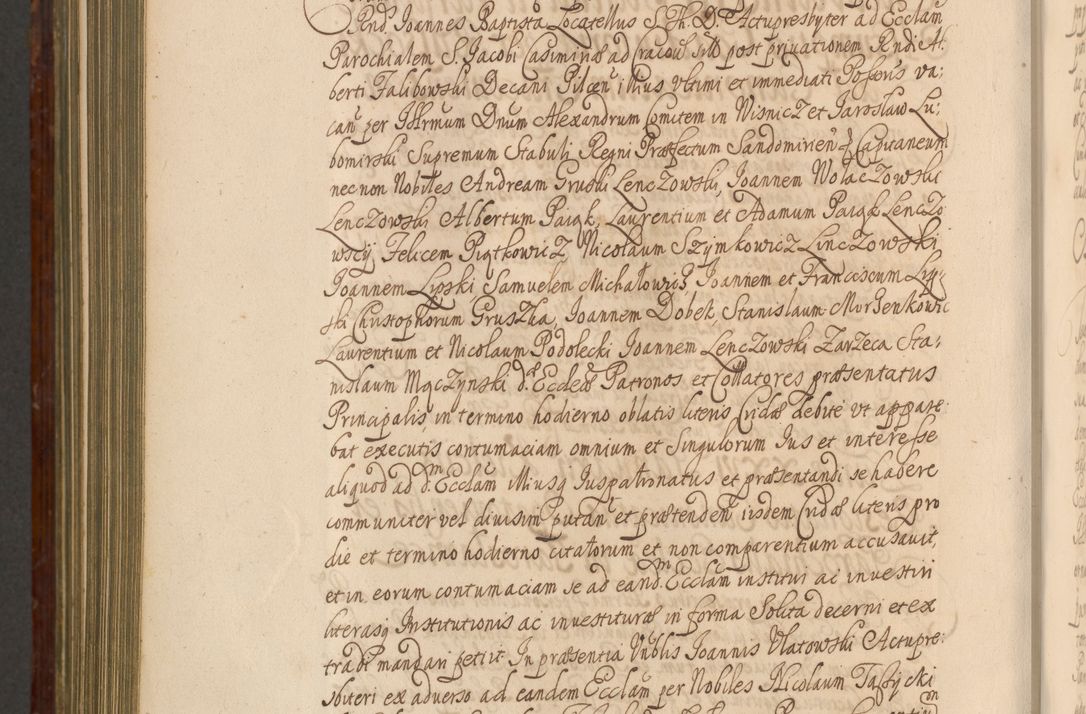 Rnd. Joannes Baptista Locatellus S. Th. D. Actupresbyter ad Ecclam
Parochialem S. Jacobi Casimiriæ ad Cracow sitã post privationem Rndi Al-
berti Falibowski Decani Pilcen illius Vltimi et immediati Possoris va:
can per Illrmum Dnum Alexandrum Comitem in Wisnicz et Jaroslaw Lu:
bomirski Supremum Stabuli Regni Præfectum Sandomirien Capitaneum
necnon Nobiles Andream Gruski LencZowski, Joannem WolacZowski
LencZowski Albertum Paigk, Laurentium et Adamum Paigk LencZo
wscy, Felicem Piątkowicz, Nicolaum Szymkowicz LincZowski,
Joannem Lipski Samuelem Michałowicz Joannem et Franciscum Lip
ski Christophorum GrusZka, Joannem Dobek, Stanislaum Morsenkowic
Laurentium et Nicolaum Podolecki Joannem LencZowski ZarZeca Sta:
nislaum MącZynski d. Ecclæ Patronos et Collatores præsentatus
Principalis in termino hodierno oblatis literis Cridæ debite vt appare:
bat executis contumaciam omnium et Singulorum Jus et interesse
aliquod ad d. Ecclam illiusq Juspatronatus et præsentandi se habere
communiter vel divisim putan et prætenden iisdem Cridæ literis pro
die et termino hodierno citatorum et non comparentium accusavit,
et in eorum contumaciam se ad eand. Ecclam institui ac investiri
literasq Institutionis ac investituræ in forma Solita decerni et ex
tradi mandari petiit. In præsentia Vnblis Joannis Vlatowski Actupre:
sbiteri ex adverso ad eandem Ecclam per Nobiles Nicolaum Taszycki